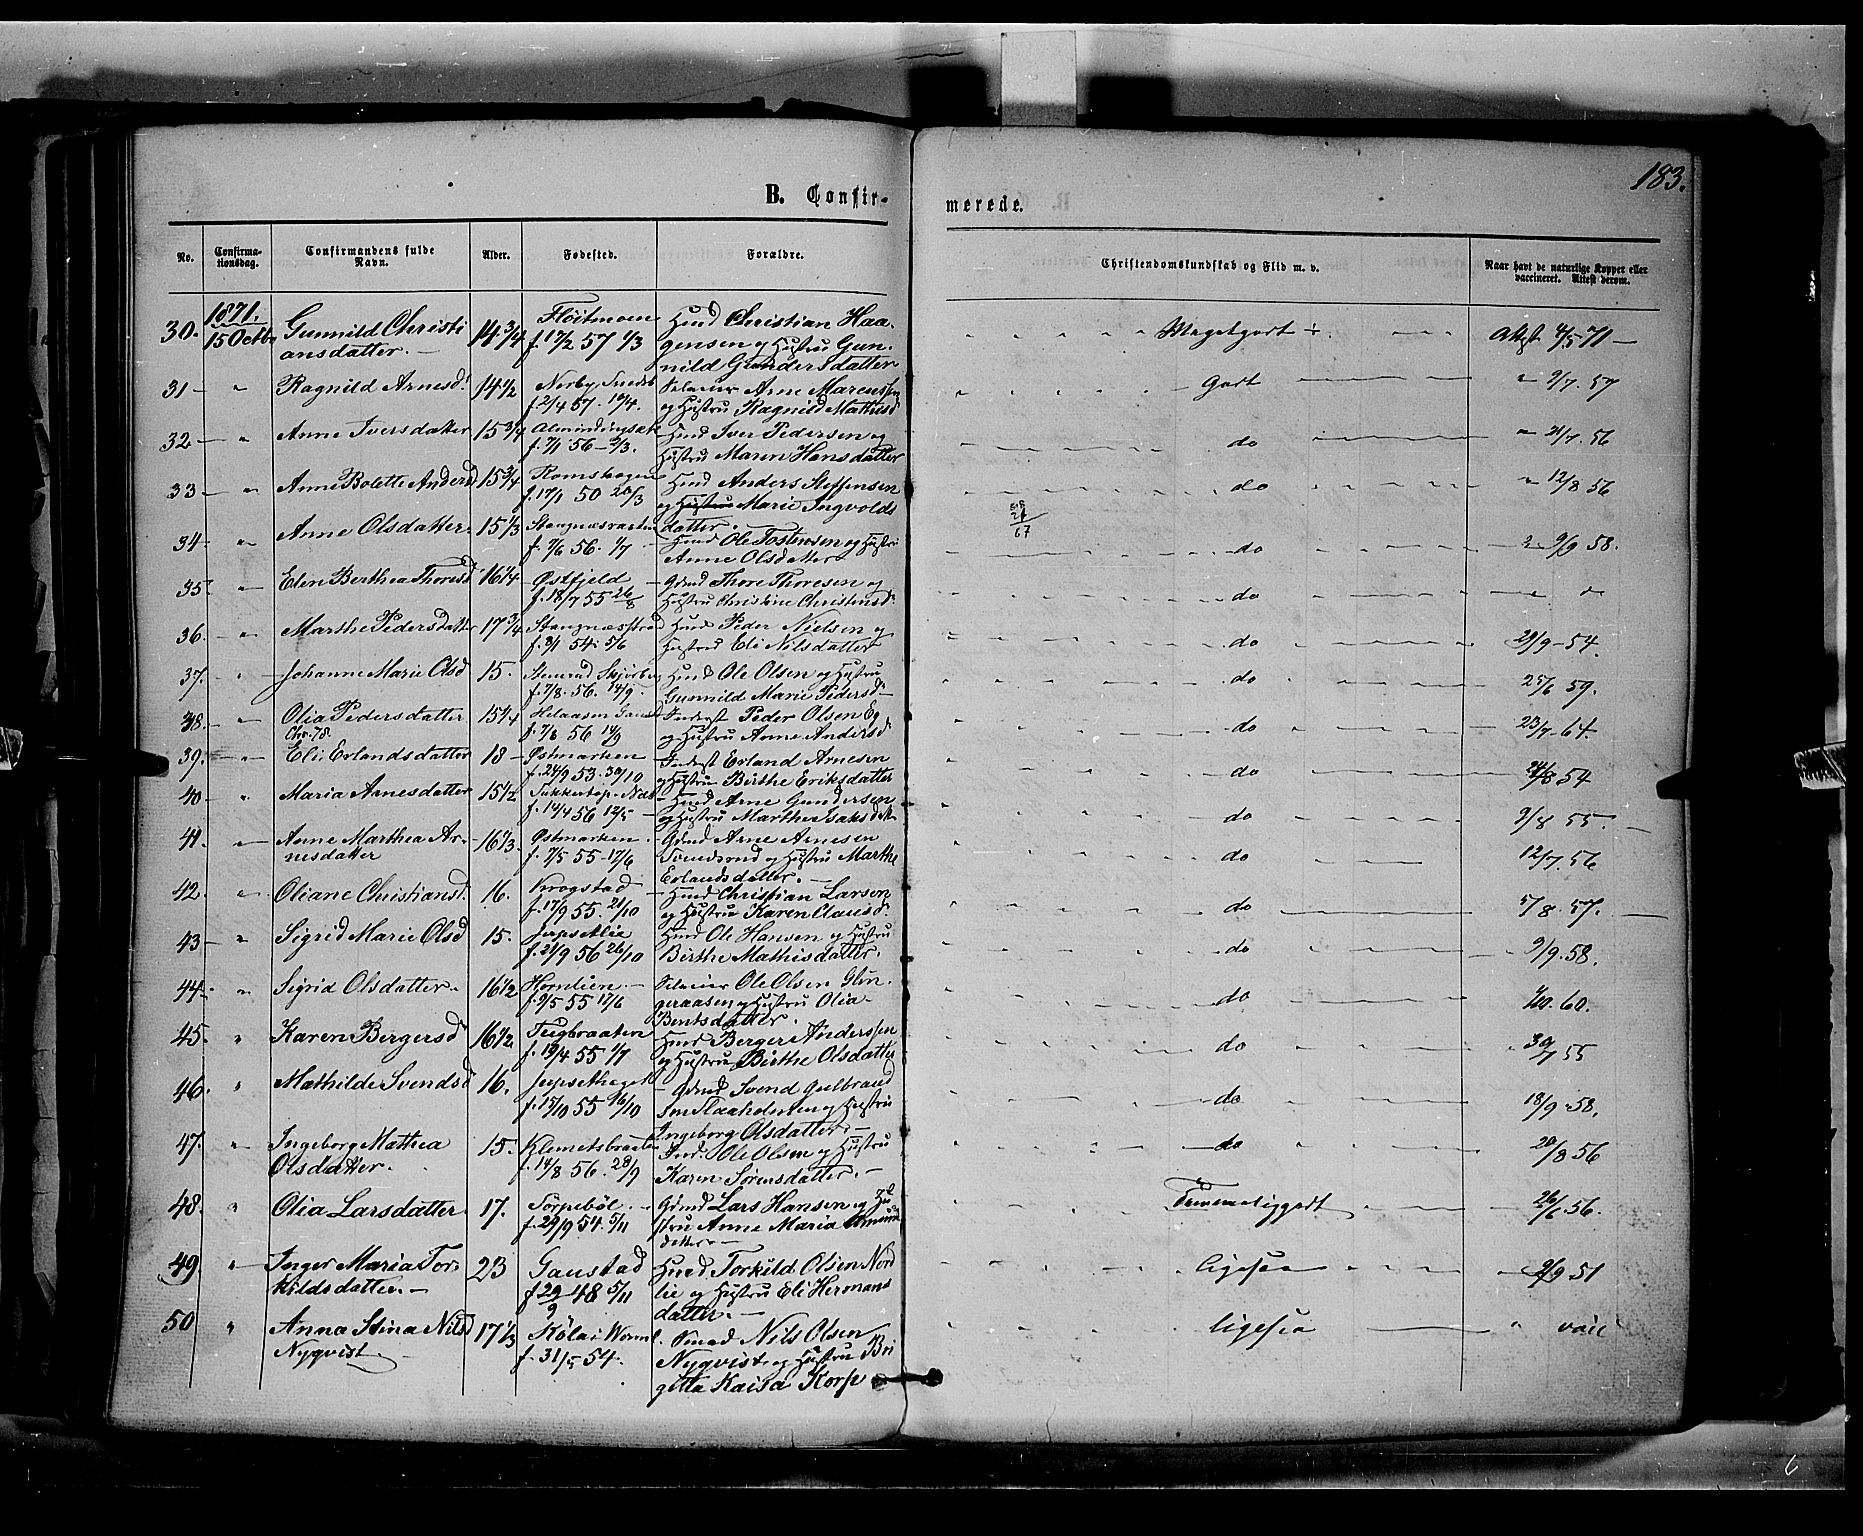 183.
B. Confir-
merede.
No.
Confirma-
tionsdag.
Confirmandens fulde
Navn.
Alder.
Fødested.
Forældre.
Christendomskundskab og Flid m. v.
Naar havt de naturlige Kopper eller
vaccineret. Attest derom.
1871.
30. 15 Octb. Gunnild Christi 14 3/4 Fløitmoen Huusd Christian Haa- Megetgodt ÷ Attest 4/5 71 —
ansdatter. — f. 17/2 57 1/3 gensen og Hustru Gun-
nild Gundersdatter
31 — " Ragnild Arnesd. 14 1/2 Nerby, f. 2/4 57. 10/4. Selveier Arne
og Hustru Ragnild Mathisd Godt 9/7. 57
32 — " Anne Iversdatter 15 3/4 f. 7/1 56 — 2/3. Huusd Iver Pedersen og
Hustru Maren Hansdatter do 21/7. 56
33 — " Anne Bolette Andersd 15 3/4 Romshagen Huusd Anders Steffensen
f. 17/1 50 20/3 og Hustru Marie Ingvolds
datter. do 12/8 56
34 — " Anne Olsdatter 15 1/3 f. 7/6 56. 1/7 Huusd Ole Tostensen og Hustru
Anne Olsdatter do 9/9 58.
67
35. " Elen Berthea Thoresd 16 1/4 Østfjeld Gdmd Thore Thoresen og
f. 18/7 55 26/8 Hustru Christine Christensd. do
36. " Marthe Pedersdatter 17 3/4 Huusd Peder Nielsen og
f. 3/1 54. 5/6 Hustru Eli Nilsdatter do 29/9 — 54.
37. " Johanne Marie Olsd 15. Huusd Ole Olsen og Hustru
f. 7/8. 56. 14/9. Gunnild Marie Pedersd. do 25/6 59.
38. " Olia Pedersdatter 15 1/4 Inderst Peder Olsen Eg
Chr. 78. f. 7/8 56 14/9 og Hustru Anne Andersd do 23/7 — 64.
39. " Eli Erlandsdatter 18 — Østmarken Inderst Erland Arnesen
f. 24/9 53. 30/10 og Hustru Birthe Eriksdatter do /8 54
40 — " Maria Arnesdatter 15 1/2 Sukkertop Huusd Arne Gundersen
f. 14/4 56 12/5 og Hustru Marthe Isaksd do 9/8 55.
41. " Anne Marthea Ar- 16 1/3 Østmarken. Gdmd Arne Arnesen
nesdatter f. 7/5 55. 17/6 Svendsrud og Hustru Marthe
Erlandsdatter. — do 12/7. 56
42. " Oliane Christiansd. 16. Krogstad Huusd Christian Larsen
f. 17/9 55. 21/10 og Hustru Karen Clausd. do 5/8. 57.
43 — " Sigrid Marie Olsd 15. Huusd Ole Hansen og Hustru
f. 21/9 56 26/10 Birthe Mathisdatter. do 9/9. 58.
44. " Sigrid Olsdatter. 16 1/2 Hornlien. Selveier Ole Olsen Glon-
f. 9/5 55 17/6 geraasen og Hustru Olia
Bentsdatter. do 60.
45. " Karen Bergersd 16 1/2 Teigbraaten Huusd Berger Anderssen
f. 19/4 55 1/7 og Hustru Birthe Olsdatter do 30/7 55
46. " Mathilde Svendsd 16. Gdmd Svend Gulbrand
f. 15/10 55 16/10 sen Flaaholmen og Hustru
Ingeborg Olsdatter. — do 18/9 58.
47. " Ingeborg Mathea 15. Klemetsbraaten Ind. Ole Olsen og Hustru
Olsdatter. f. 14/8 56. 28/9 Karen Sørensdatter. — do 20/8 56
48. " Olia Larsdatter. 17. Torpebøl. Gdmd Lars Hansen og Hu
f. 29/9 54. 5/11 stru Anne Maria Amund
datter. 26/6. 56.
49 " Inger Maria Tor- 23 Gaustad Huusd Torkild Olsen Nord
kildsdatter. — f. 29/9 48 5/11 lie og Hustru Eli Hermans
datter. — ligesaa 9/9. 51
50 " Anna Stina Nilsd 17 1/3 Köla i Werml. Smed Nils Olsen
Nyqvist. f. 31/5 54. Nyqvist og Hustru Bri
gitta Kaisa Korse ligesaa
6